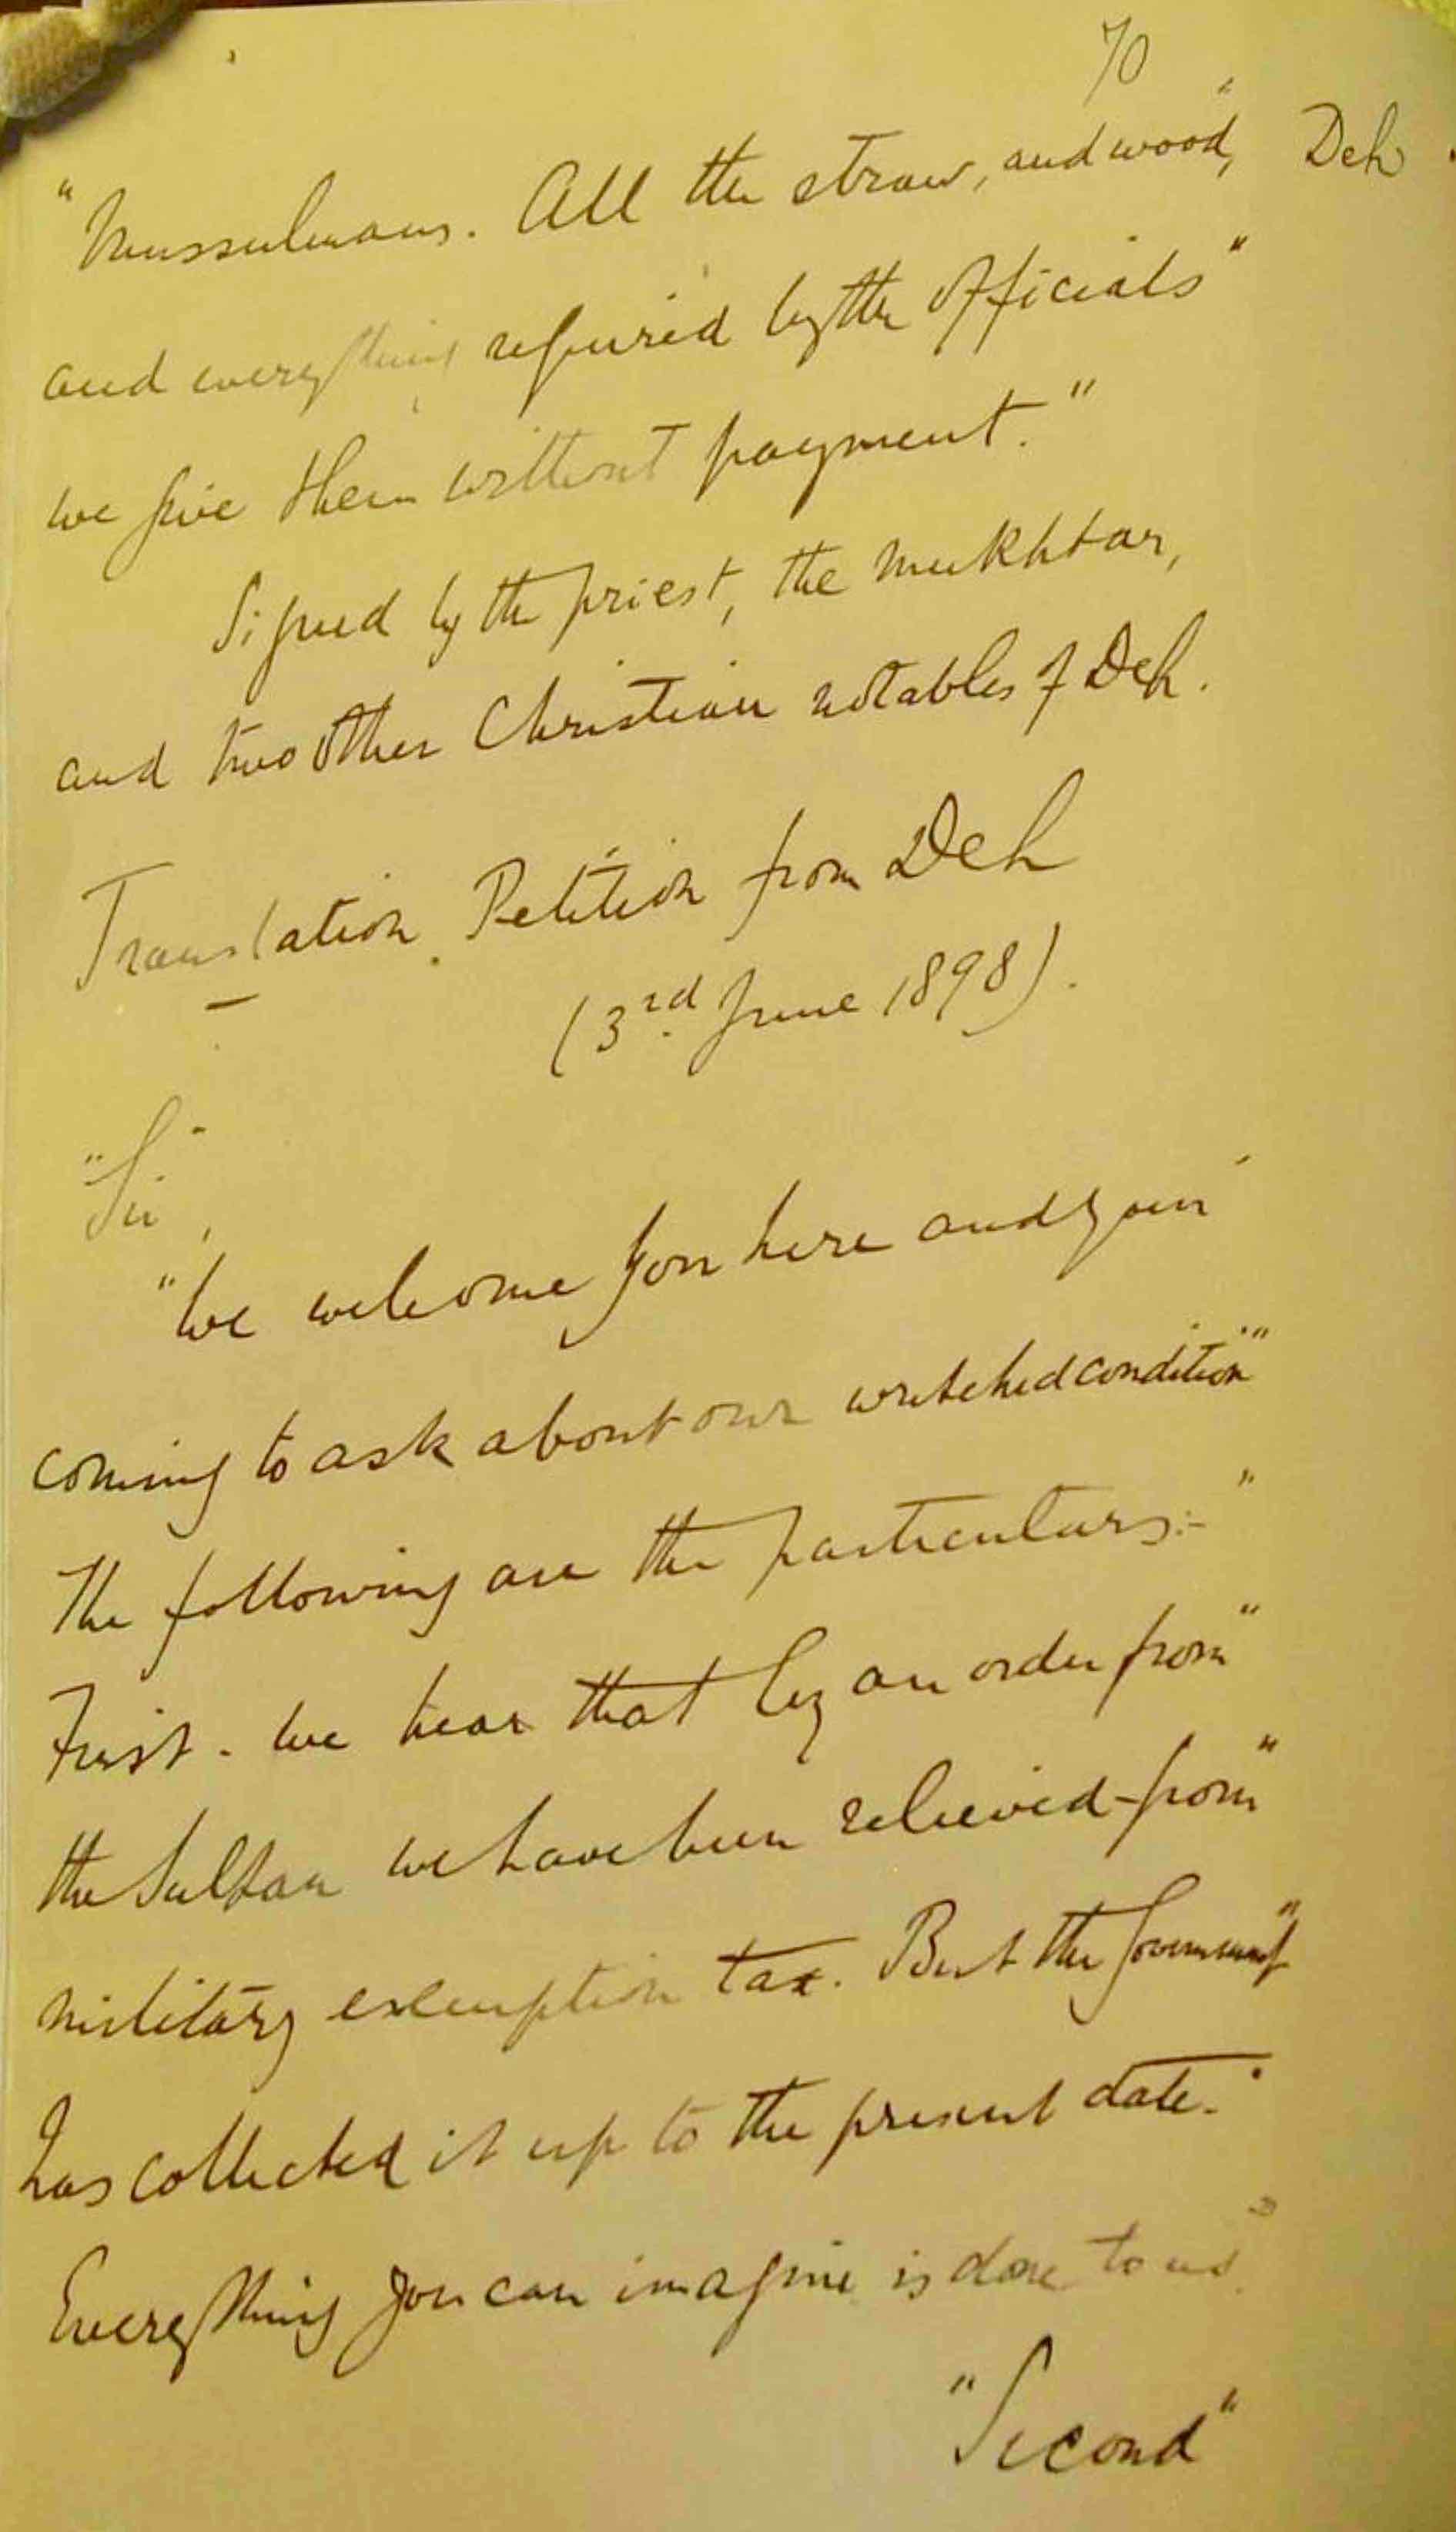 70
"Mussulmans. All the straw, and wood," Deh.
and everything required by the officials"
we give them without payment."
Signed by the priest, the mukhtar,
and two other Christian notables of Deh.
Translation. Petition from Deh
(3rd June 1898).
"Sir",
"We welcome you here and your"
coming to ask about our wretched condition"
The following are the particulars:-"
First. We hear that by an order from"
the Sultan we have been relieved from"
military exemption tax. But the Government"
has collected it up to the present date."
Everything you can imagine is done to us."
"Second"